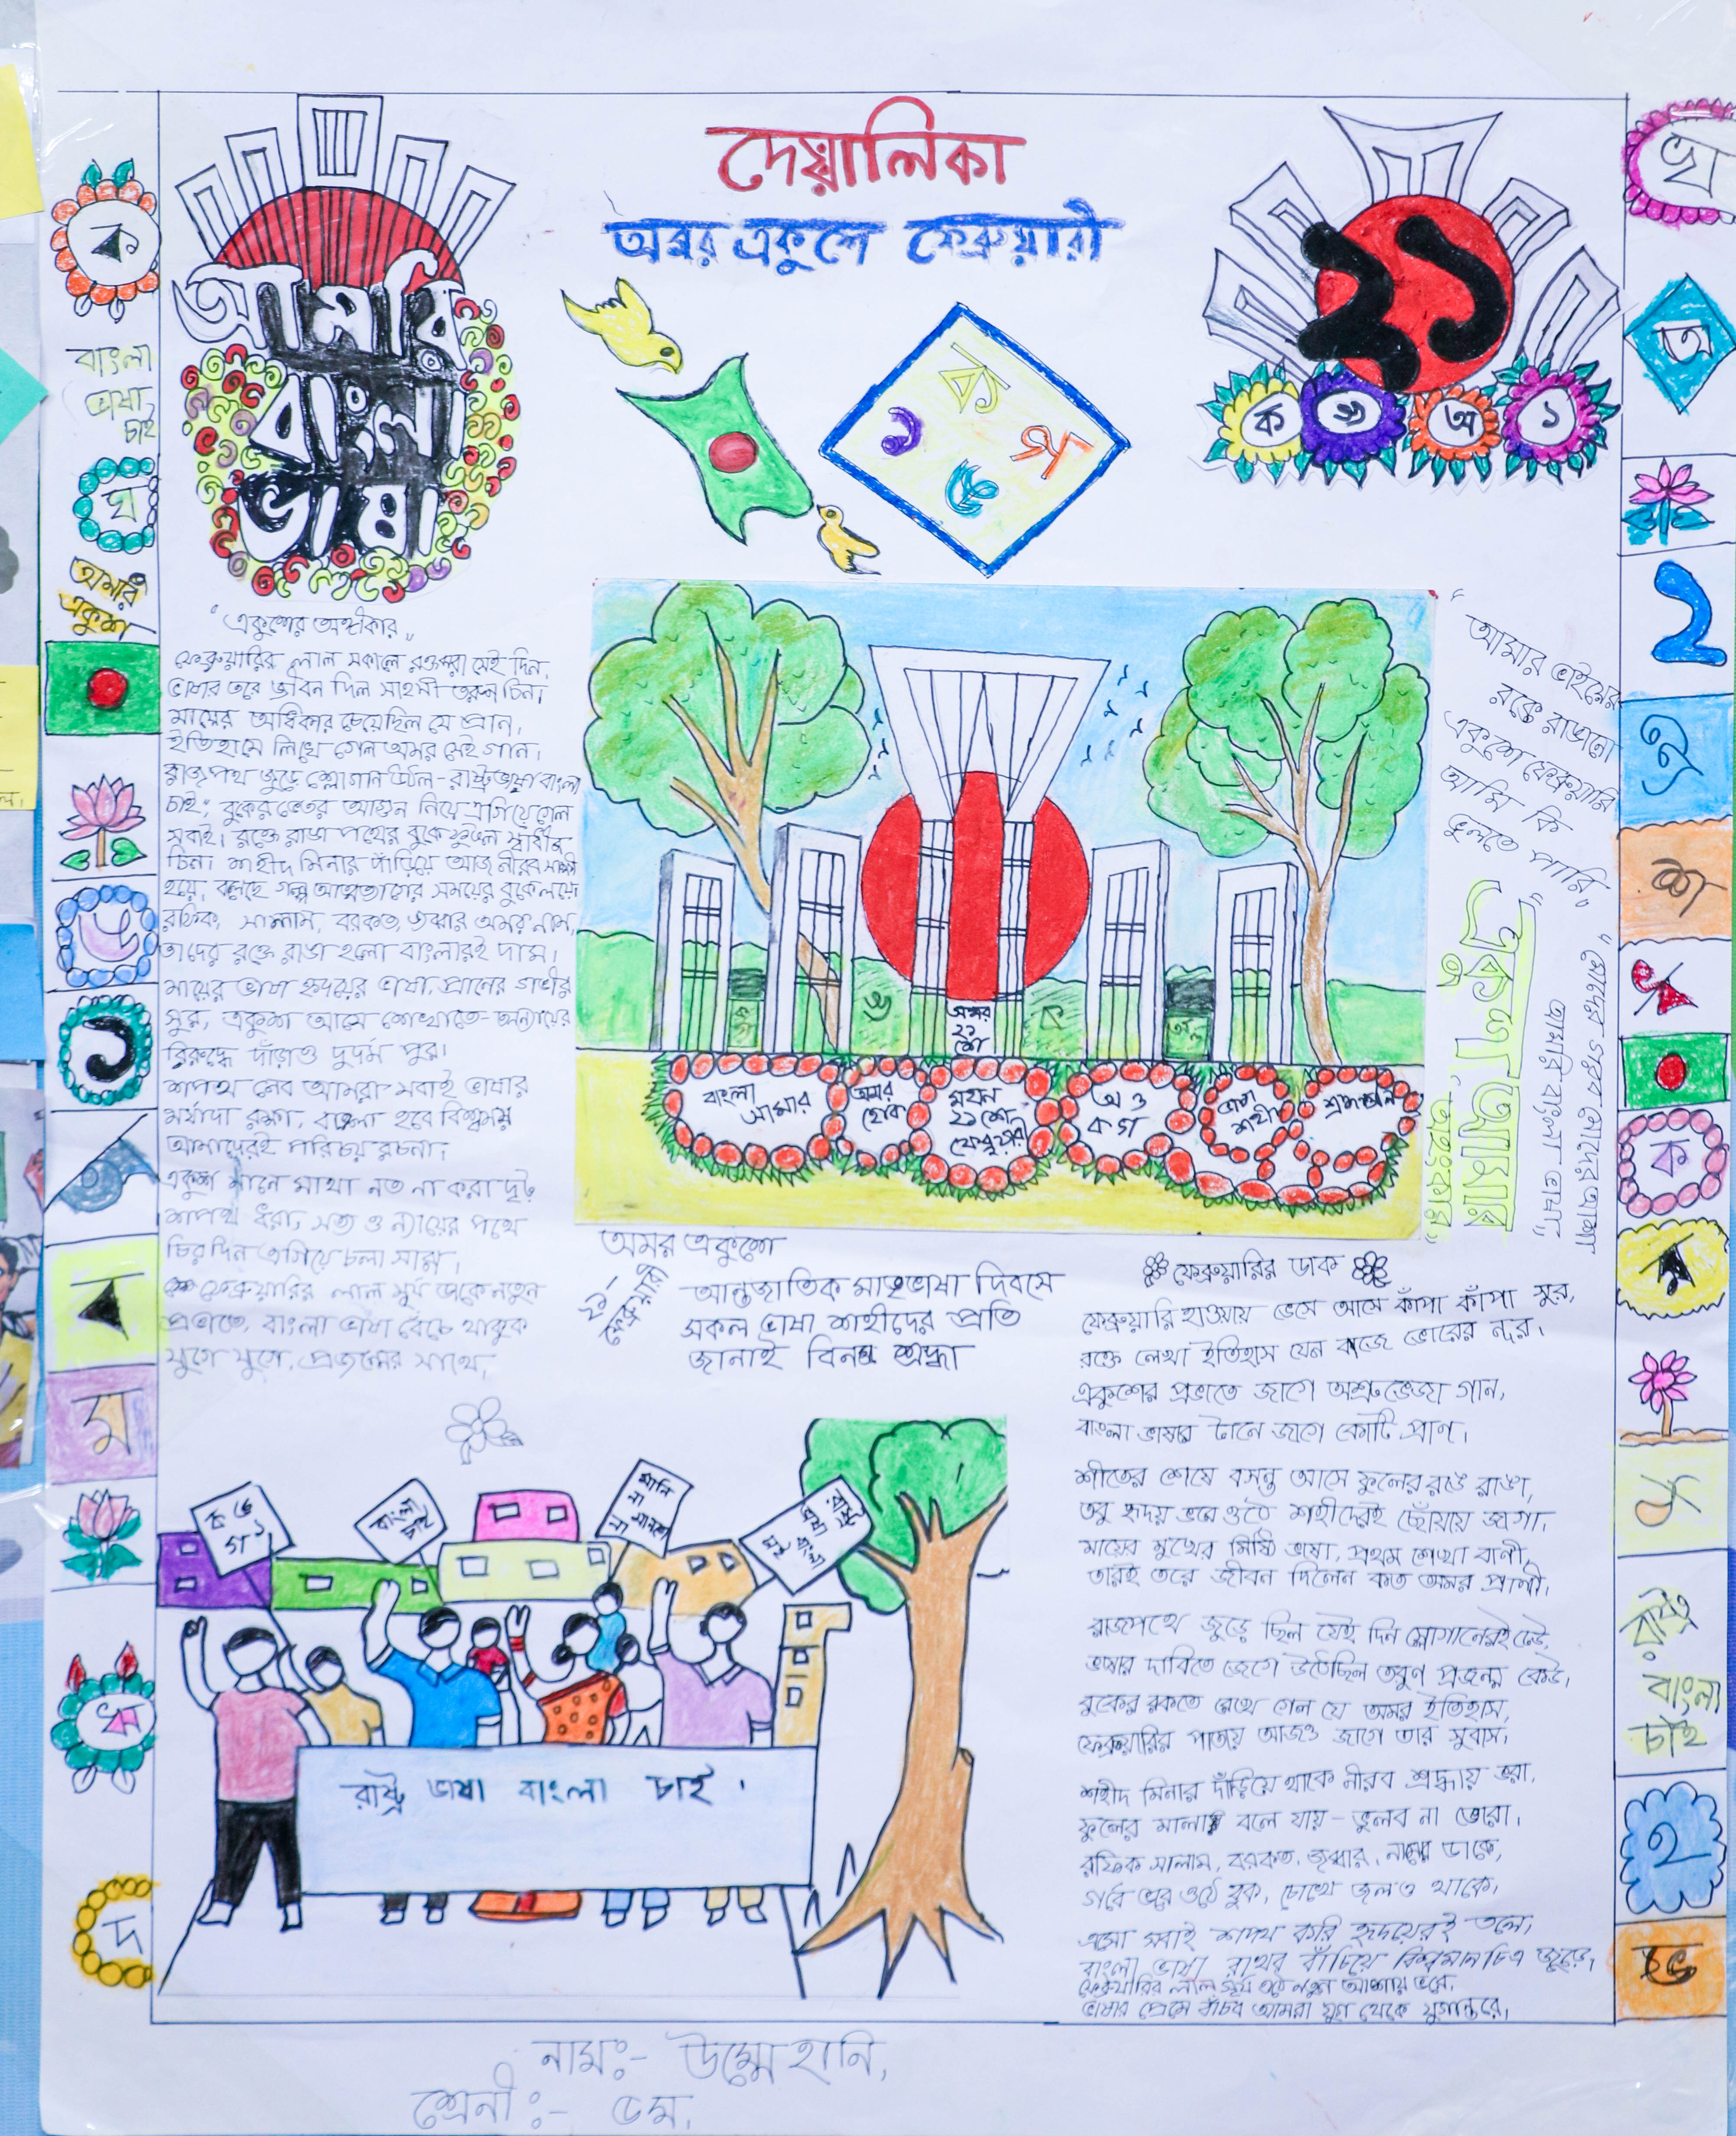 দেয়ালিকা
অমর একুশে ফেব্রুয়ারী
আমারি
বাংলা
ভাষা
২১
ক ৬ অ ১
ক
১ প
৬
ক
বাংলা
ভাষা
চাই
ঘ
আমার
একুশ
৬
১
ব
ম
দ
খ
অ
2
ক
রাষ্ট্র
বাংলা
চাই
"একুশের অঙ্গীকার"
ফেব্রুয়ারির লাল সকালে রক্তঝরা সেই দিন,
ভাষার তরে জীবন দিল সাহসী তরুণ চিন।
মায়ের অধিকার চেয়েছিল যে প্রাণ,
ইতিহাসে লিখে গেল অমর সেই গান।
রাজপথ জুড়ে শ্লোগান উঠল - রাষ্ট্রভাষা বাংলা
চাই; বুকের ভেতর আগুন নিয়ে এগিয়ে গেল
সবাই। রক্তে রাঙা পথের বুকে ফুটল স্বাধীন
চিন। শহীদ মিনার দাঁড়িয়ে আজ নীরব সাক্ষী
হয়ে, বলছে গল্প আত্মত্যাগের সময়ের বুকে লয়ে।
রফিক, সালাম, বরকত, জব্বার অমর নাম,
তাদের রক্তে রাঙা হলো বাংলারই দাম।
মায়ের ভাষা হৃদয়ের ভাষা, প্রাণের গভীর
সুর, একুশ আসে শেখাতে- অন্যায়ের
বিরুদ্ধে দাঁড়াও দুর্দম পুর।
শপথ নেব আমরা সবাই ভাষার
মর্যাদা রক্ষা, বাংলা হবে বিশ্বময়
আমাদেরই পরিচয় রচনা।
একুশ মানে মাথা নত না করা দৃঢ়
শপথ ধরা, সত্য ও ন্যায়ের পথে
চিরদিন এগিয়ে চলা সারা।
ফেব্রুয়ারির লাল সূর্য ডাকে নতুন
প্রভাতে, বাংলা ভাষা বেঁচে থাকুক
যুগে যুগে, প্রজন্মের সাথে,
অমর
২১
শে
৬ ক
বাংলা
আমার
অমর
হোক
মহান
২১ শে
ফেব্রুয়ারী
অ ও
ক গ
শহীদ
"আমার ভাইয়ের
রক্তে রাঙানো
একুশে ফেব্রুয়ারি
আমি কি
ভুলতে পারি"
"একুশ আমার
অহংকার"
"মোদের গরব মোদের আশা
আমরি বাংলা ভাষা"
অমর একুশে
২১-
ফেব্রুয়ারী
আন্তজাতিক মাতৃভাষা দিবসে
সকল ভাষা শহীদের প্রতি
জানাই বিনম্র শ্রদ্ধা
ফেব্রুয়ারির ডাক
ফেব্রুয়ারি হাওয়ায় ভেসে আসে কাঁপা কাঁপা সুর,
রক্তে লেখা ইতিহাস যেন বাজে ভোরের নূর।
একুশের প্রভাতে জাগে অশ্রুভেজা গান,
বাংলা ভাষার টানে জাগে কোটি প্রাণ।
শীতের শেষে বসন্ত আসে ফুলের রঙে রাঙা,
তবু হৃদয় ভরে ওঠে শহীদেরই ছোঁয়ায় জাগা।
মায়ের মুখের মিষ্টি ভাষা, প্রথম শেখা বানী,
তারই তরে জীবন দিলেন কত অমর প্রাণী।
রাজপথে জুড়ে ছিল সেই দিন স্লোগানেরই ঢেউ,
ভাষার দাবিতে জেগে উঠেছিল তরুণ প্রজন্ম কেউ।
বুকের রকতে লেখে গেল যে অমর ইতিহাস,
ফেব্রুয়ারির পাতায় আজও জাগে তার সুবাস।
শহীদ মিনার দাঁড়িয়ে থাকে নীরব শ্রদ্ধায় ভরা,
ফুলের মালায় বলে যায় - ভুলব না তোরা।
রফিক সালাম, বরকত, জব্বার, নামের ডাকে,
গর্বে ভরে ওঠে বুক, চোখে জলও থাকে।
এসো সবাই শপথ করি হৃদয়েরই তলে,
বাংলা ভাষা রাখব বাঁচিয়ে বিশ্বমানচিত্র জুড়ে,
ফেব্রুয়ারির লাল সূর্য ওঠে নতুন আশায় ভরে,
ভাষার প্রেমে বাঁচব আমরা যুগ থেকে যুগান্তরে।
ক ৬
গ ১
বাংলা
চাই
মানি
না
মানবো
না
রাষ্ট্র ভাষা বাংলা চাই।
নামঃ- উম্মে হানি,
শ্রেনীঃ- ৬ম,